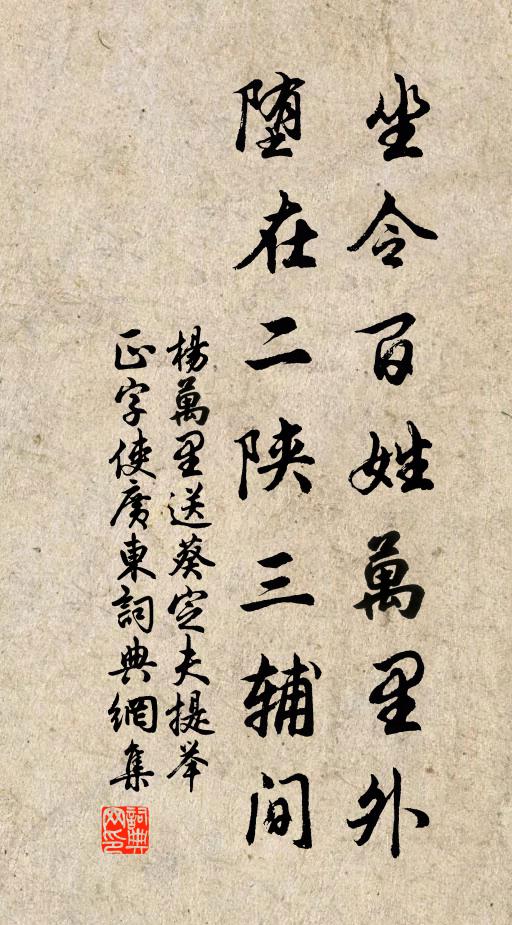 坐令百姓萬里外
堕在二陕三辅间
楊萬里送葵定夫提举
正字使廣東詞典網集
詞典
网印